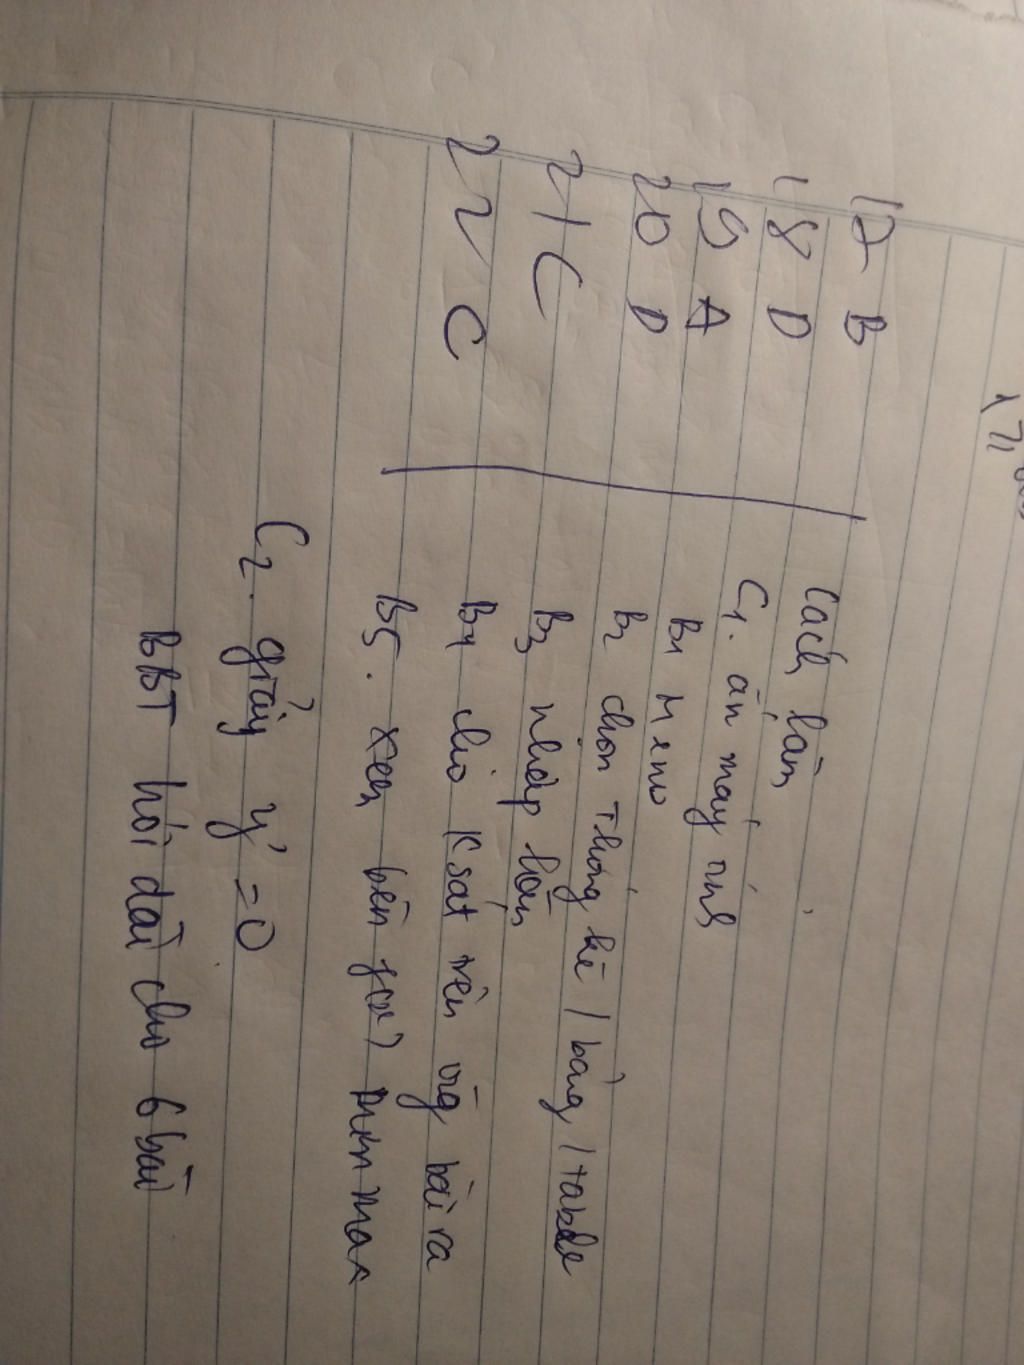 17 B
18 D
19 A
20 D
21 C
22 C
Cách làm
C1. ấn máy tính
B1 Menu
B2 chọn Thống kê / bảng / table
B3 nhập hàm
B4 cho K sát trên đề bài ra
B5. xem bên f(x) min max
C2. giải y' = 0
BBT hơi dài cho 6 bài